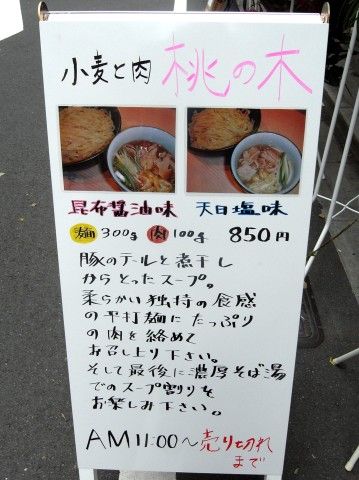 小麦と肉 桃の木
昆布醤油味 天日塩味
麺 300g 肉 100g 850円
豚のテールと煮干し
からとったスープ。
柔らかい独特の食感
の平打麺にたっぷり
の肉を絡めて
お召し上り下さい。
そして最後に濃厚そば湯
でのスープ割りを
お楽しみ下さい。
AM11:00〜売り切れ
まで